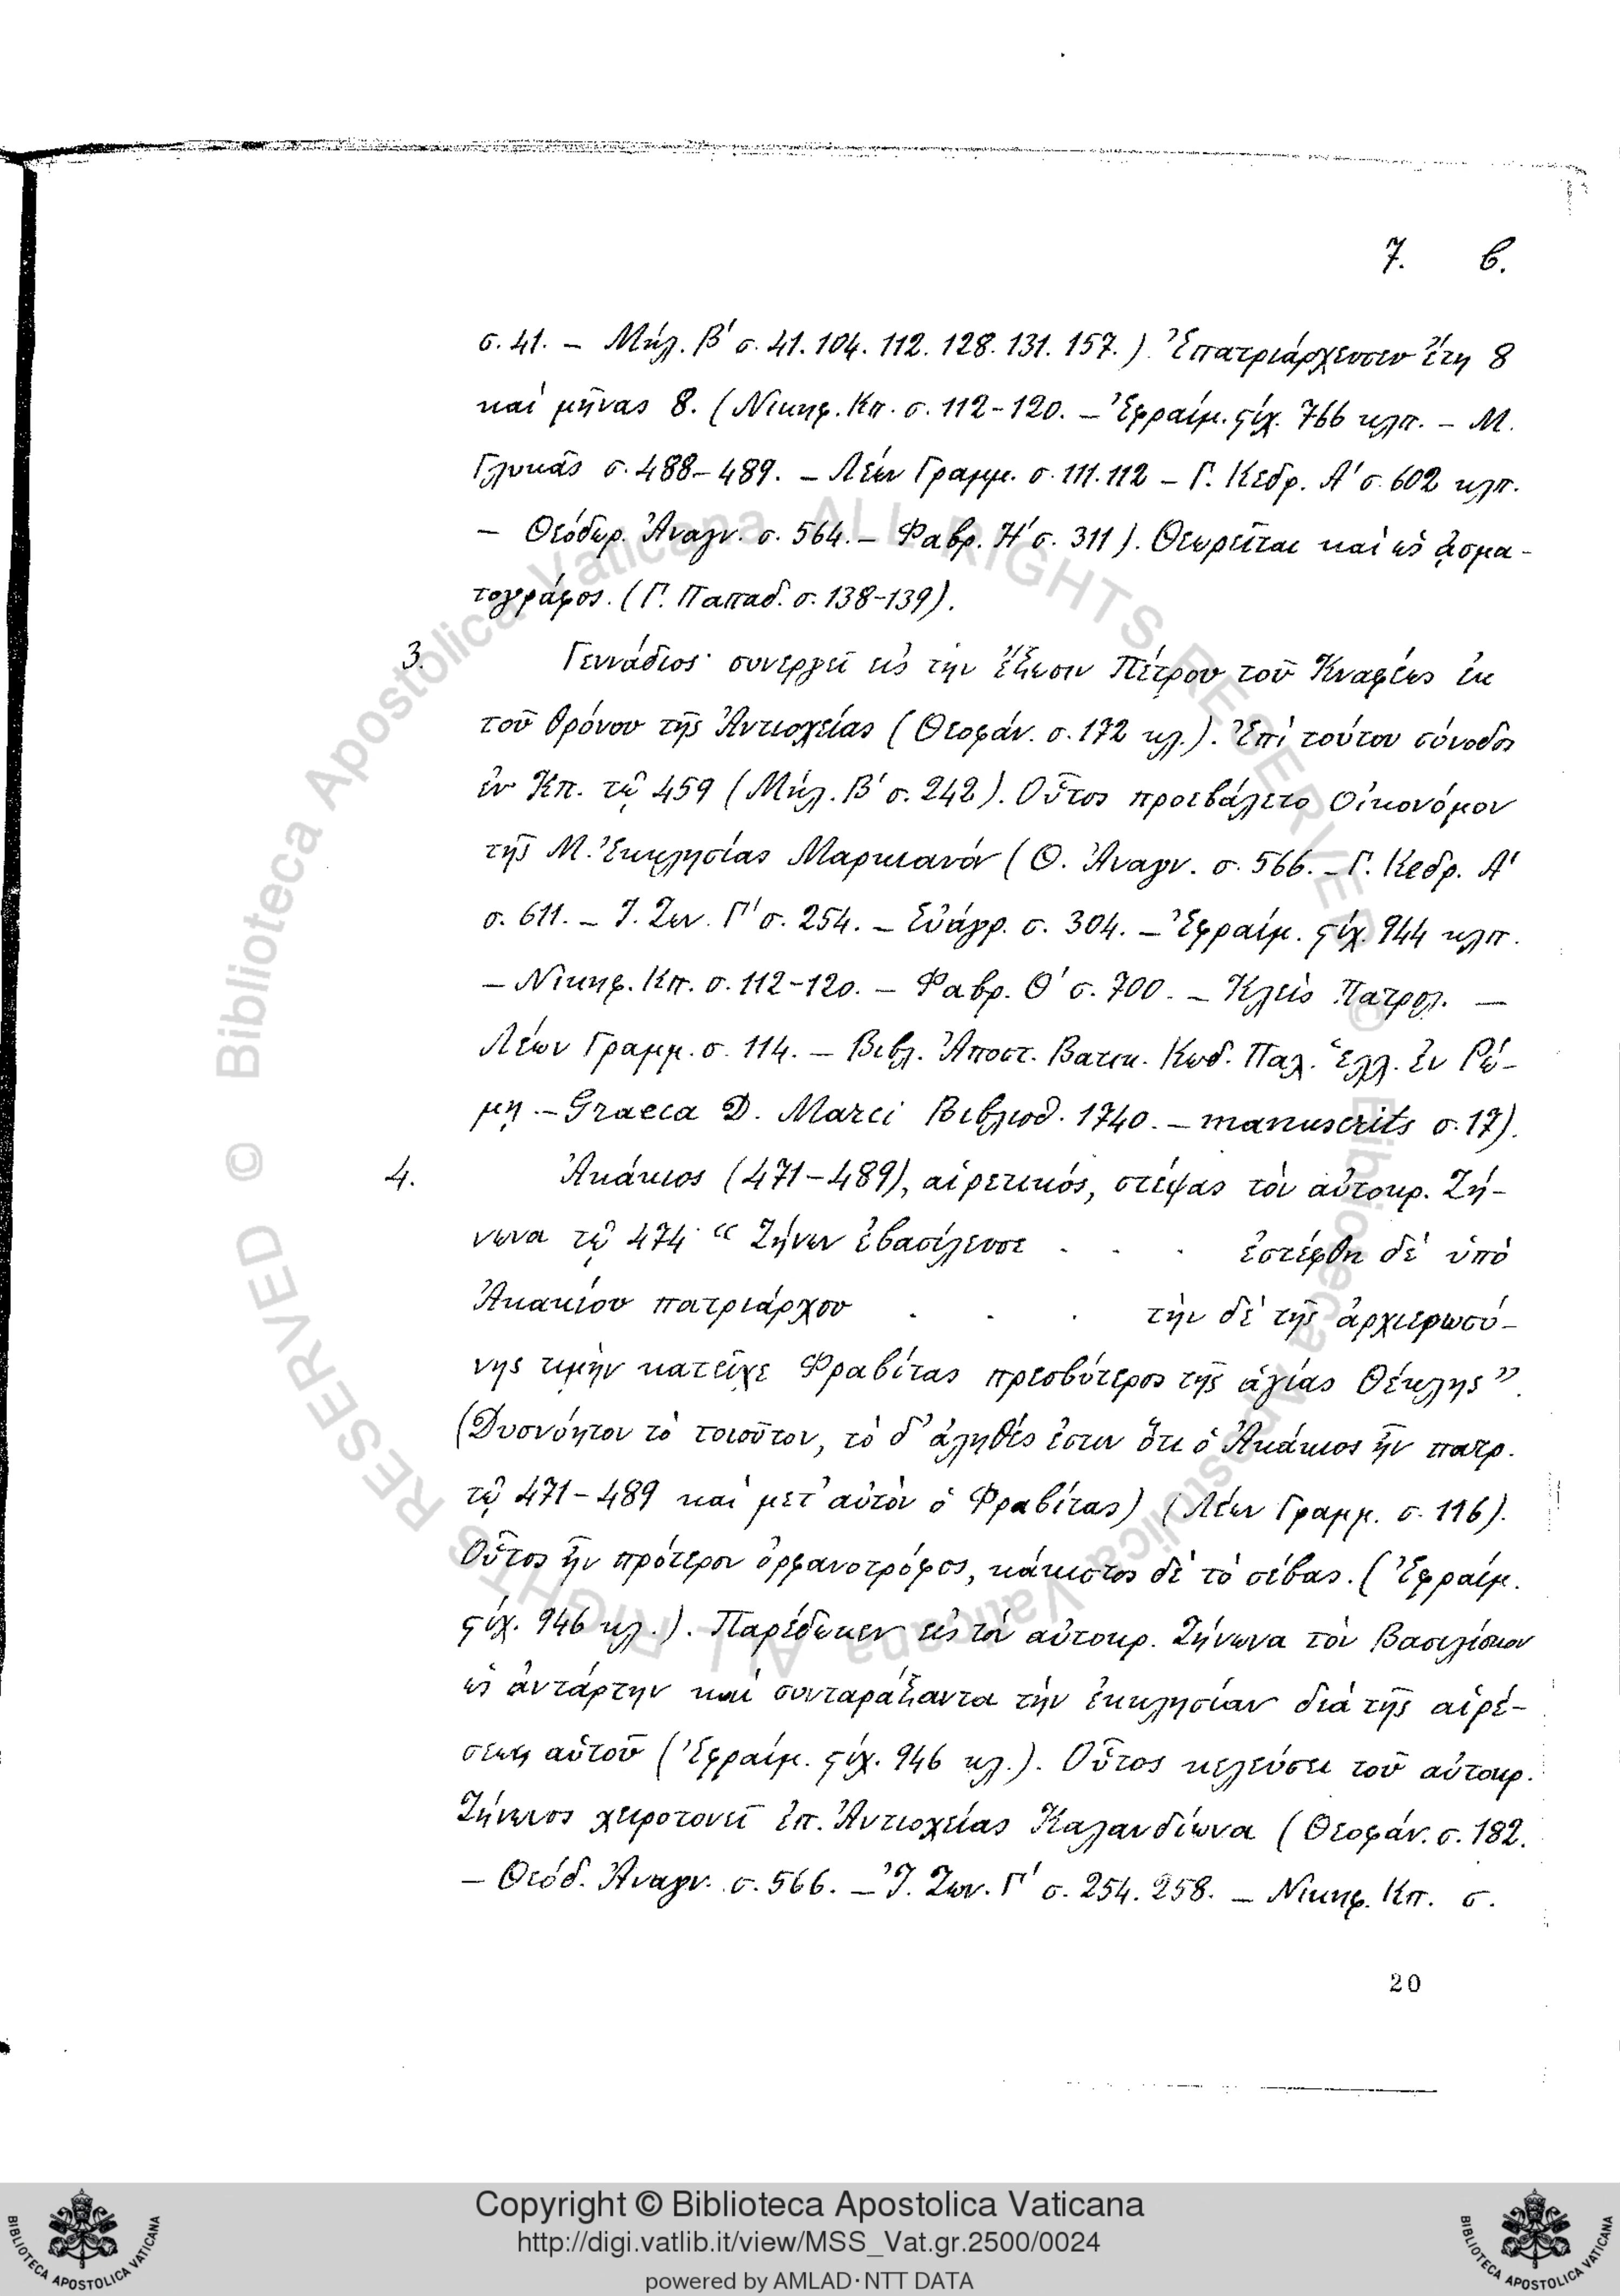 7. β.
σ. 41. – Μήλ. Β΄ σ. 41. 104. 112. 128. 131. 157.). Ἐπατριάρχευσεν ἔτη 8
καὶ μῆνας 8. (Νικηφ. Κπ. σ. 112–120. – Ἐφραίμ. ϛίχ. 766 κλπ. – Μ.
Γλυκᾶς σ. 488–489. – Λέων Γραμμ. σ. 111. 112 – Γ. Κεδρ. Α΄ σ. 602 κλπ.
– Θεόδωρ. Ἀναγν. σ. 564. – Φαβρ. Η΄ σ. 311). Θεωρεῖται καὶ ὡς ᾀσμα-
τογράφος. (Γ. Παπαδ. σ. 138–139).
3. Γεννάδιος· συνεργεῖ εἰς τὴν ἔξωσιν Πέτρου τοῦ Κναφέως ἐκ
τοῦ θρόνου τῆς Ἀντιοχείας (Θεοφάν. σ. 172 κλ.). Ἐπὶ τούτου σύνοδος
ἐν Κπ. τῷ 459 (Μήλ. Β΄ σ. 242). Οὗτος προεβάλετο Οἰκονόμον
τῆς Μ. Ἐκκλησίας Μαρκιανόν (Θ. Ἀναγν. σ. 566. – Γ. Κεδρ. Α΄
σ. 611. – Ἰ. Ζων. Γ΄ σ. 254. – Εὐάγρ. σ. 304. – Ἐφραίμ. ϛίχ. 944 κλπ.
– Νικηφ. Κπ. σ. 112–120. – Φαβρ. Θ΄ σ. 700. – Κλεὶς Πατρολ. –
Λέων Γραμμ. σ. 114. – Βιβλ. Ἀποστ. Βατικ. Κωδ. Παλ. Ἑλλ. ἐν Ῥώ-
μῃ. – Graeca D. Marci Βιβλιοθ. 1740. – manuscrits σ. 17).
4. Ἀκάκιος (471–489), αἱρετικός, στέψας τὸν αὐτοκρ. Ζή-
νωνα τῷ 474· “Ζήνων ἐβασίλευσε . . . ἐστέφθη δὲ ὑπὸ
Ἀκακίου πατριάρχου . . . τὴν δὲ τῆς ἀρχιερωσύ-
νης τιμὴν κατεῖχε Φραβίτας πρεσβύτερος τῆς ἁγίας Θέκλης”.
(Δυσνόητον τὸ τοιοῦτον, τὸ δ’ ἀληθές ἐστιν ὅτι ὁ Ἀκάκιος ἦν πατρ.
τῷ 471–489 καὶ μετ’ αὐτὸν ὁ Φραβίτας) (Λέων Γραμμ. σ. 116).
Οὗτος ἦν πρότερον ὀρφανοτρόφος, κάκιστος δὲ τὸ σέβας. (Ἐφραίμ.
ϛίχ. 946 κλ.). Παρέδωκεν εἰς τὸν αὐτοκρ. Ζήνωνα τὸν Βασιλίσκον
ὡς ἀντάρτην καὶ συνταράξαντα τὴν ἐκκλησίαν διὰ τῆς αἱρέ-
σεως αὐτοῦ (Ἐφραίμ. ϛίχ. 946 κλ.). Οὗτος κελεύσει τοῦ αὐτοκρ.
Ζήνωνος χειροτονεῖ ἐπ. Ἀντιοχείας Καλανδίωνα (Θεοφάν. σ. 182.
– Θεόδ. Ἀναγν. σ. 566. – Ἰ. Ζων. Γ΄ σ. 254. 258. – Νικηφ. Κπ. σ.
20
© Biblioteca Apostolica Vaticana ALL RIGHTS RESERVED
© Biblioteca Apostolica Vaticana ALL RIGHTS RESERVED
Copyright © Biblioteca Apostolica Vaticana
http://digi.vatlib.it/view/MSS_Vat.gr.2500/0024
powered by AMLAD·NTT DATA
BIBLIOTECA APOSTOLICA VATICANA
BIBLIOTECA APOSTOLICA VATICANA